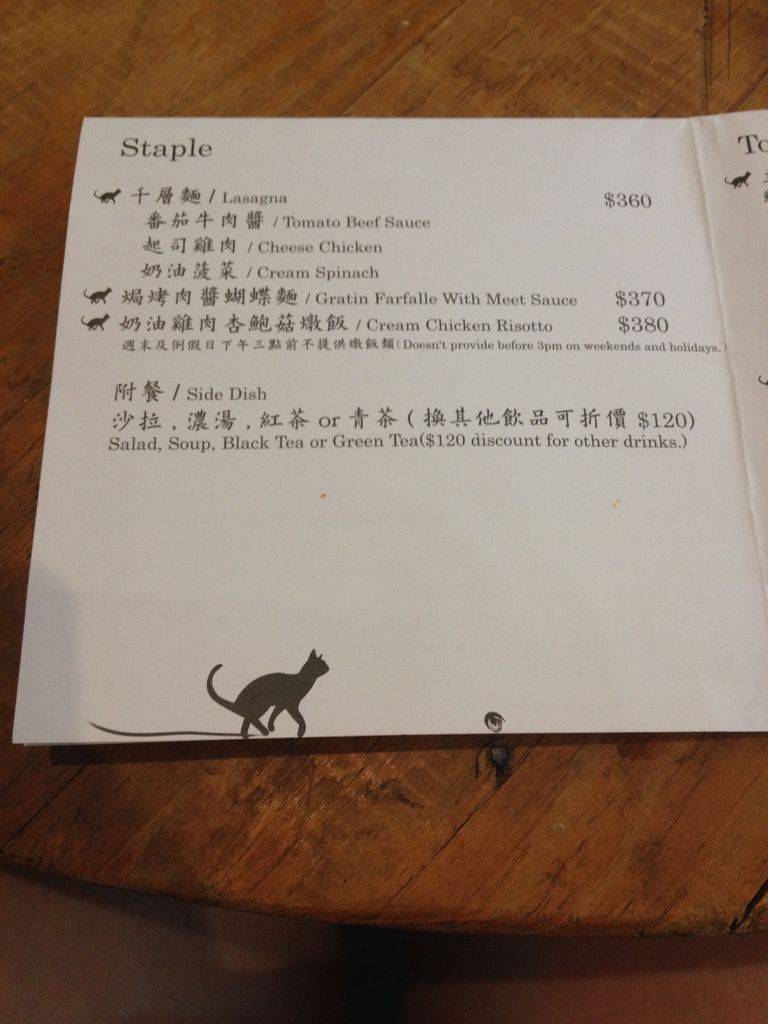 Staple
千層麵 / Lasagna $360
番茄牛肉醬 / Tomato Beef Sauce
起司雞肉 / Cheese Chicken
奶油菠菜 / Cream Spinach
焗烤肉醬蝴蝶麵 / Gratin Farfalle With Meet Sauce $370
奶油雞肉杏鮑菇燉飯 / Cream Chicken Risotto $380
週末及例假日下午三點前不提供燉飯類(Doesn't provide before 3pm on weekends and holidays.)
附餐 / Side Dish
沙拉 , 濃湯 , 紅茶 or 青茶 ( 換其他飲品可折價 $120)
Salad, Soup, Black Tea or Green Tea($120 discount for other drinks.)